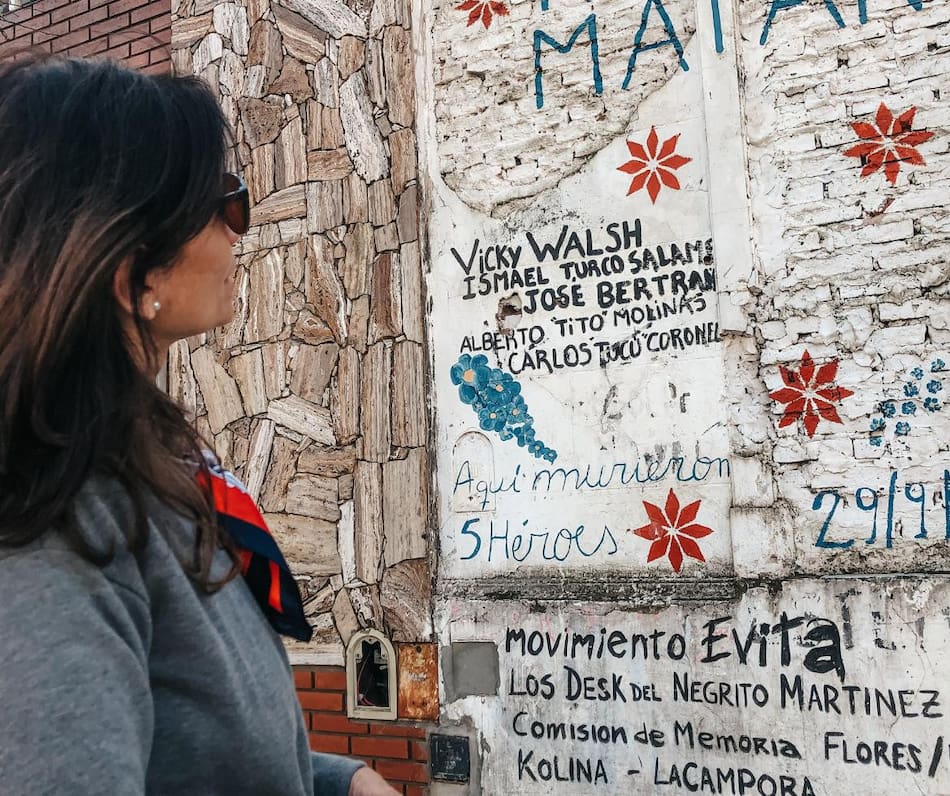 MATAN
VICKY WALSH
ISMAEL TURCO SALAME
JOSE BERTRAN
ALBERTO "TITO" MOLINAS
CARLOS TUCU CORONEL
Aqui murieron
5 Héroes
29/9/
MOVIMIENTO EVITA
LOS DESK DEL NEGRITO MARTINEZ
COMISION DE MEMORIA FLORES/
KOLINA - LACAMPORA